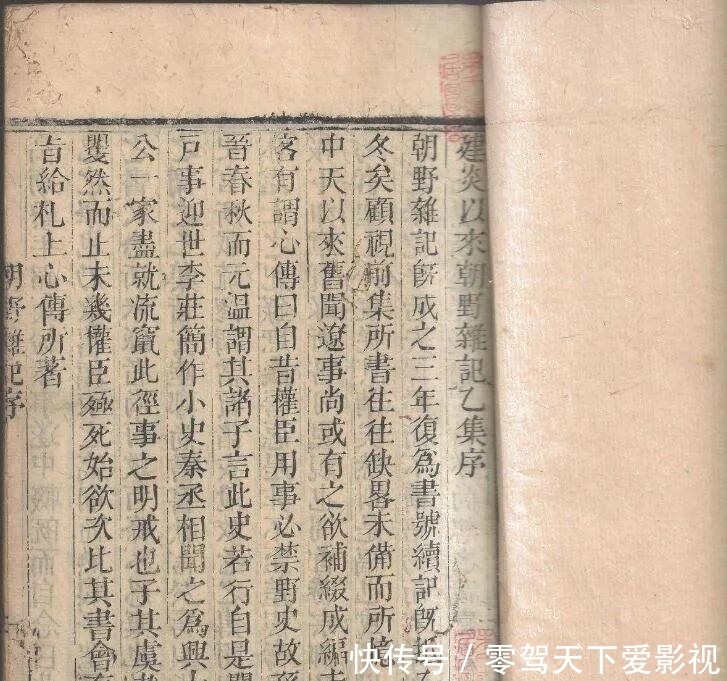 建炎以來朝野雜記乙集序
朝野雜記旣成之三年復爲書號續記旣
冬矣顧視前集所書往往缺畧未備而所
中天以來舊聞遼事尚或有之欲補綴成編
客有謂心傳曰自昔權臣用事必禁野史故
晉春秋而元温謂其諸子言此史若行自是
戸事近世李莊簡作小史秦丞相聞之爲興
公一家盡就流竄此徑事之明戒也子其虞
矍然而止未幾權臣殛死始欲次比其書會
旨給札上心傳所著
朝野雜記序
快传号 / 零驾天下爱影视